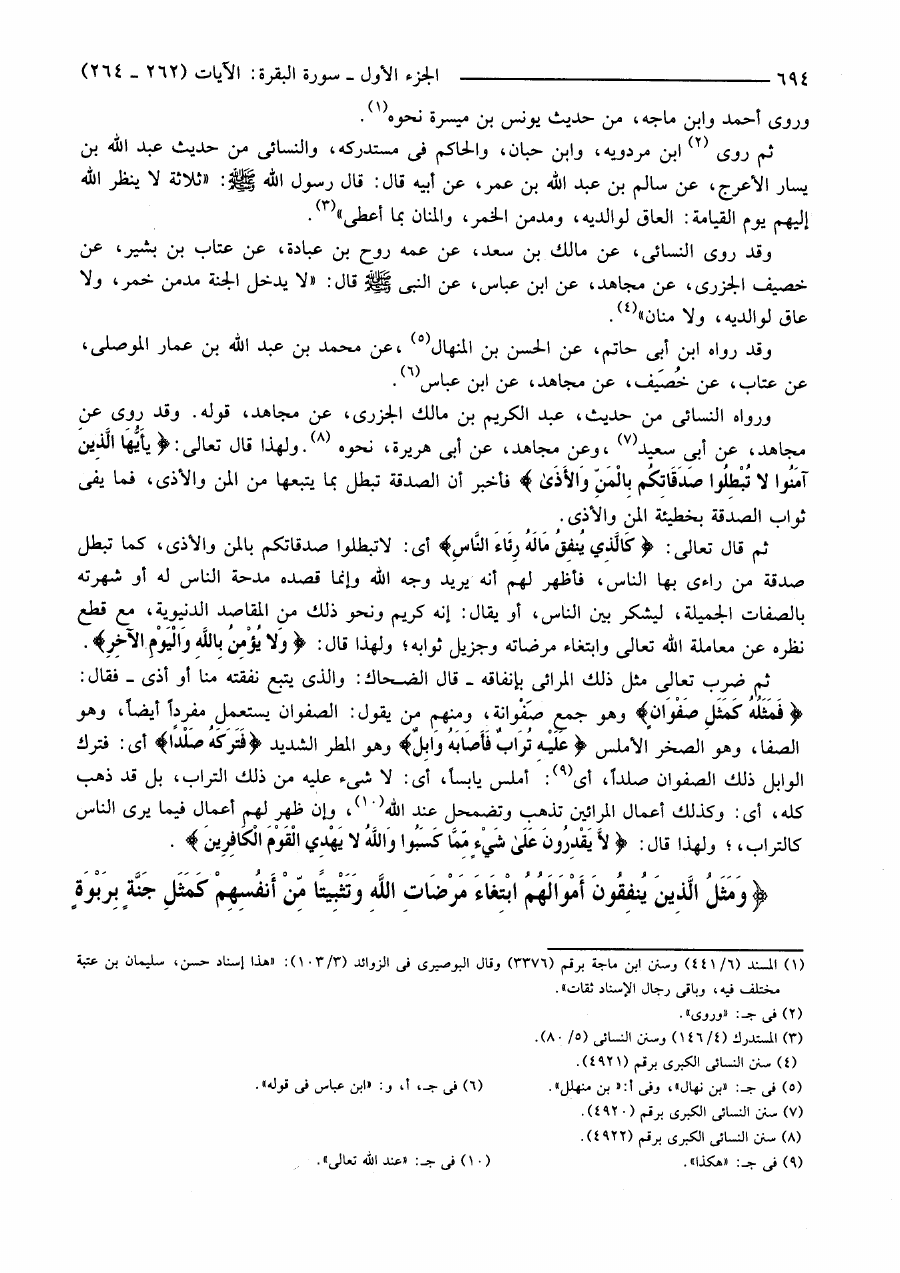 ٦٩٤ ــــــــــــــــــــــــــــــــ الجزء الأول ـ سورة البقرة: الآيات (٢٦٢ ـ ٢٦٤)
وروى أحمد وابن ماجه، من حديث يونس بن ميسرة نحوه(١).
ثم روى (٢) ابن مردويه، وابن حبان، والحاكم فى مستدركه، والنسائى من حديث عبد الله بن
يسار الأعرج، عن سالم بن عبد الله بن عمر، عن أبيه قال: قال رسول الله ﷺ: «ثلاثة لا ينظر الله
إليهم يوم القيامة: العاق لوالديه، ومدمن الخمر، والمنان بما أعطى»(٣).
وقد روى النسائى، عن مالك بن سعد، عن عمه روح بن عبادة، عن عتاب بن بشير، عن
خصيف الجزرى، عن مجاهد، عن ابن عباس، عن النبى ﷺ قال: «لا يدخل الجنة مدمن خمر، ولا
عاق لوالديه، ولا منان»(٤).
وقد رواه ابن أبى حاتم، عن الحسن بن المنهال(٥) ،عن محمد بن عبد الله بن عمار الموصلى،
عن عتاب، عن خُصَيف، عن مجاهد، عن ابن عباس(٦).
ورواه النسائى من حديث، عبد الكريم بن مالك الجزرى، عن مجاهد، قوله. وقد روى عن
مجاهد، عن أبى سعيد(٧) ،وعن مجاهد، عن أبى هريرة، نحوه (٨).ولهذا قال تعالى:﴿ يَأَيُّهَا الَّذِينَ
آمَنُوا لا تُبْطِلُوا صَدَقَاتِكُم بِالْمَنِّ وَالأَذَىٰ ﴾ فأخبر أن الصدقة تبطل بما يتبعها من المن والأذى، فما يفى
ثواب الصدقة بخطيئة المن والأذى.
ثم قال تعالى: ﴿ كَالَّذِي يُنفِقُ مَالَهُ رِئَاءَ النَّاسِ﴾ أى: لاتبطلوا صدقاتكم بالمن والأذى، كما تبطل
صدقة من راءى بها الناس، فأظهر لهم أنه يريد وجه الله وإنما قصده مدحة الناس له أو شهرته
بالصفات الجميلة، ليشكر بين الناس، أو يقال: إنه كريم ونحو ذلك من المقاصد الدنيوية، مع قطع
نظره عن معاملة الله تعالى وابتغاء مرضاته وجزيل ثوابه؛ ولهذا قال: ﴿ وَلا يُؤْمِنُ بِاللَّهِ وَالْيَوْمِ الآخِرِ﴾.
ثم ضرب تعالى مثل ذلك المرائى بإنفاقه ـ قال الضحاك: والذى يتبع نفقته منا أو أذى ـ فقال:
﴿ فَمَثَلُهُ كَمَثَلِ صَفْوَانٍ﴾ وهو جمع صَفْوانة، ومنهم من يقول: الصفوان يستعمل مفرداً أيضاً، وهو
الصفا، وهو الصخر الأملس ﴿ عَلَيْهِ تُرَابٌ فَأَصَابَهُ وَابِلٌ﴾ وهو المطر الشديد ﴿فَتَرَكَهُ صَلْدًا﴾ أى: فترك
الوابل ذلك الصفوان صلداً، أى(٩): أملس يابساً، أى: لا شىء عليه من ذلك التراب، بل قد ذهب
كله، أى: وكذلك أعمال المرائين تذهب وتضمحل عند الله(١٠)، وإن ظهر لهم أعمال فيما يرى الناس
كالتراب،؛ ولهذا قال: ﴿ لاَّ يَقْدِرُونَ عَلَىٰ شَيْءٍ مِّمَّا كَسَبُوا وَاللَّهُ لا يَهْدِي الْقَوْمَ الْكَافِرِينَ ﴾ .
﴿ وَمَثَلُ الَّذِينَ يُنفِقُونَ أَمْوَالَهُمُ ابْتِغَاءَ مَرْضَاتِ اللَّهِ وَتَثْبِيتًا مِّنْ أَنفُسِهِمْ كَمَثَلِ جَنَّةٍ بِرَبْوَةٍ
(١) المسند (٤٤١/٦) وسنن ابن ماجة برقم (٣٣٧٦) وقال البوصيرى فى الزوائد (١٠٣/٣): «هذا إسناد حسن، سليمان بن عتبة
مختلف فيه، وباقى رجال الإسناد ثقات».
(٢) فى جـ: «وروى».
(٣) المستدرك (١٤٦/٤) وسنن النسائى (٨٠/٥).
(٤) سنن النسائى الكبرى برقم (٤٩٢١).
(٥) فى جـ: «بن نهال»، وفى أ:« بن منهلل». (٦) فى جـ، أ، و: «ابن عباس فى قوله».
(٧) سنن النسائى الكبرى برقم (٤٩٢٠).
(٨) سنن النسائى الكبرى برقم (٤٩٢٢).
(٩) فى جـ: «هكذا». (١٠) فى جـ: «عند الله تعالى».